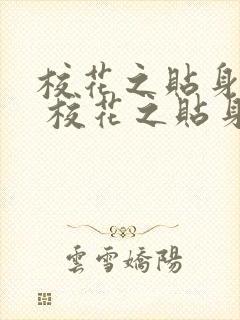 校花之貼身
校花之貼身
雲雪嬌陽